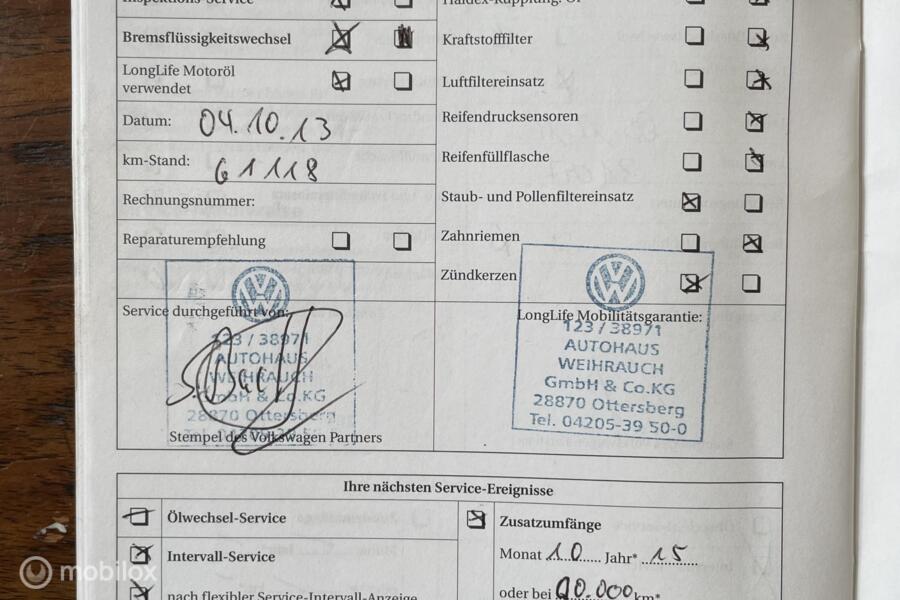 Inspektions-Service
Bremsflüssigkeitswechsel
LongLife Motoröl
verwendet
Datum: 04.10.13
km-Stand: 61118
Rechnungsnummer:
Reparaturempfehlung
Haldex-Kupplung: Öl
Kraftstofffilter
Luftfiltereinsatz
Reifendrucksensoren
Reifenfüllflasche
Staub- und Pollenfiltereinsatz
Zahnriemen
Zündkerzen
Service durchgeführt von:
123 / 38971
AUTOHAUS
WEIHRAUCH
GmbH & Co.KG
28870 Ottersberg
Stempel des Volkswagen Partners
LongLife Mobilitätsgarantie:
123 / 38971
AUTOHAUS
WEIHRAUCH
GmbH & Co.KG
28870 Ottersberg
Tel. 04205-39 50-0
Ihre nächsten Service-Ereignisse
Ölwechsel-Service
Intervall-Service
nach flexibler Service-Intervall-Anzeige
Zusatzumfänge
Monat 10 Jahr* 15
oder bei 90.000 km*
mobilox